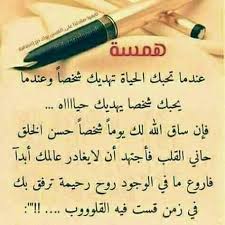 همسة
عندما تحبك الحياة تهديك شخصاً وعندما
يحبك شخصا يهديك حياااه ...
فإن ساق الله لك يوماً شخصاً حسن الخلق
حاني القلب فأجتهد أن لايغادر عالمك أبدآ
فاروع ما في الوجود روح رحيمة ترفق بك
في زمن قست فيه القلوووب .... !!":